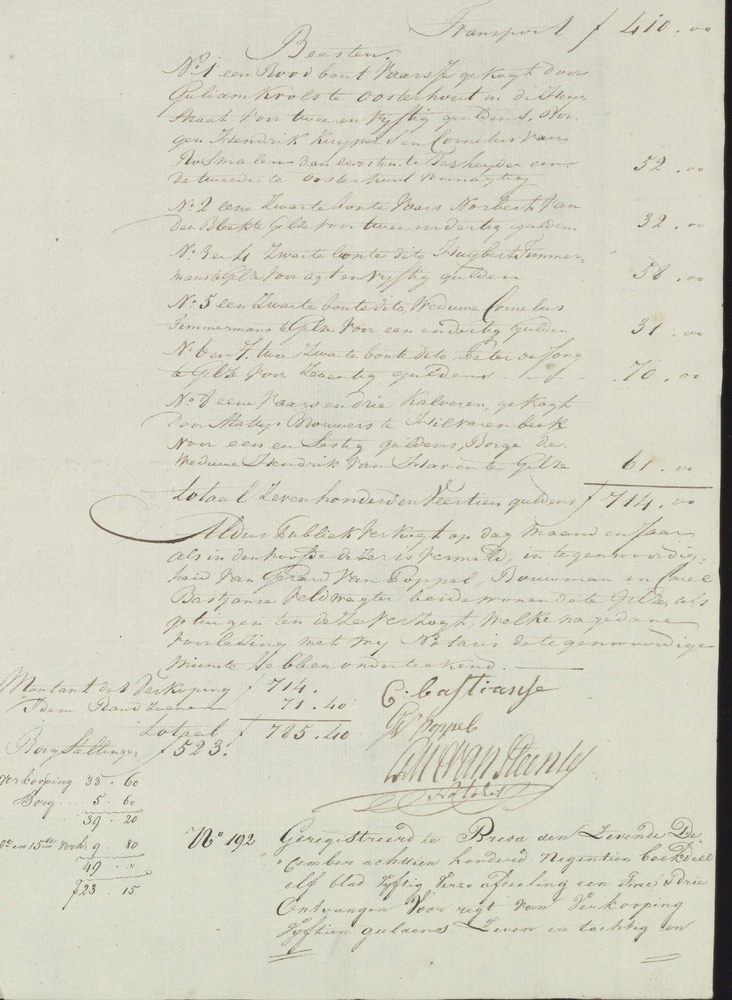 Transport f 410.00
Beesten
No 1 een Rood bont Vaarsje gekogt door
Guliam Krols te Oosterhout in de Heij-
straat voor twee en Vyftig guldens, Bor-
gen Hendrik Kuypers en Cornelus Van
Rosmalen den eersten te Terheyden en
de tweede te Oosterhout 52.00
No 2 eene Zwarte bonte Vaars Norbert Van
den Bleek te Gilze voor twee en dertig gulden 32.00
No 3 en 4 Zwarte bonte dito, Huybert Timmer-
mans te Gilze voor agt en Vyftig gulden 58.00
No 5 een Zwarte bonte dito, Weduwe Cornelus
Timmermans te Gilze voor een en dertig gulden 31.00
No 6 en 7, twee Zwarte bonte dito, Peter de Jong
te Gilze voor Zeventig guldens 70.00
No 8 eene Vaars en drie Kalveren, gekogt
door Mattys Brouwers te Hilvarenbeek
voor een en Sestig guldens, Borge de
Weduwe Hendrik Van te Gilze 61.00
totaal Zevenhonderd en Veertien guldens f 714.00
Aldus Publiek Verkogt op dag maand en Jaar
als in den hoofde dezer is Vermeld, in tegenwoordig-
heid Van Gerard Van Poppel, Bouwman en Carel
Bastianse Veldwagter beide wonende te Gilze, als
getuigen ten deze Verzogt, welke na gedane
voorlezing met my Notaris de tegenwoordige
minute Hebben onderteekend.
C. Bastianse
GV poppel
Montant der Verkoping f 714.
Idem Rand 71.40
totaal f 785.40
Borgstellinge f 523.
Verkooping 33.60
Borg 5.60
39.20
9.80
49.0
f 23.15
No 192 Geregistreerd te Breda den Zevende De-
cember achttien honderd Negentien boekdeel
elf blad Vyftig Verzo afdeeling een Drie
Ontvangen Voor regt van Verkooping
Vyftien guldens Zeven en tachtig en